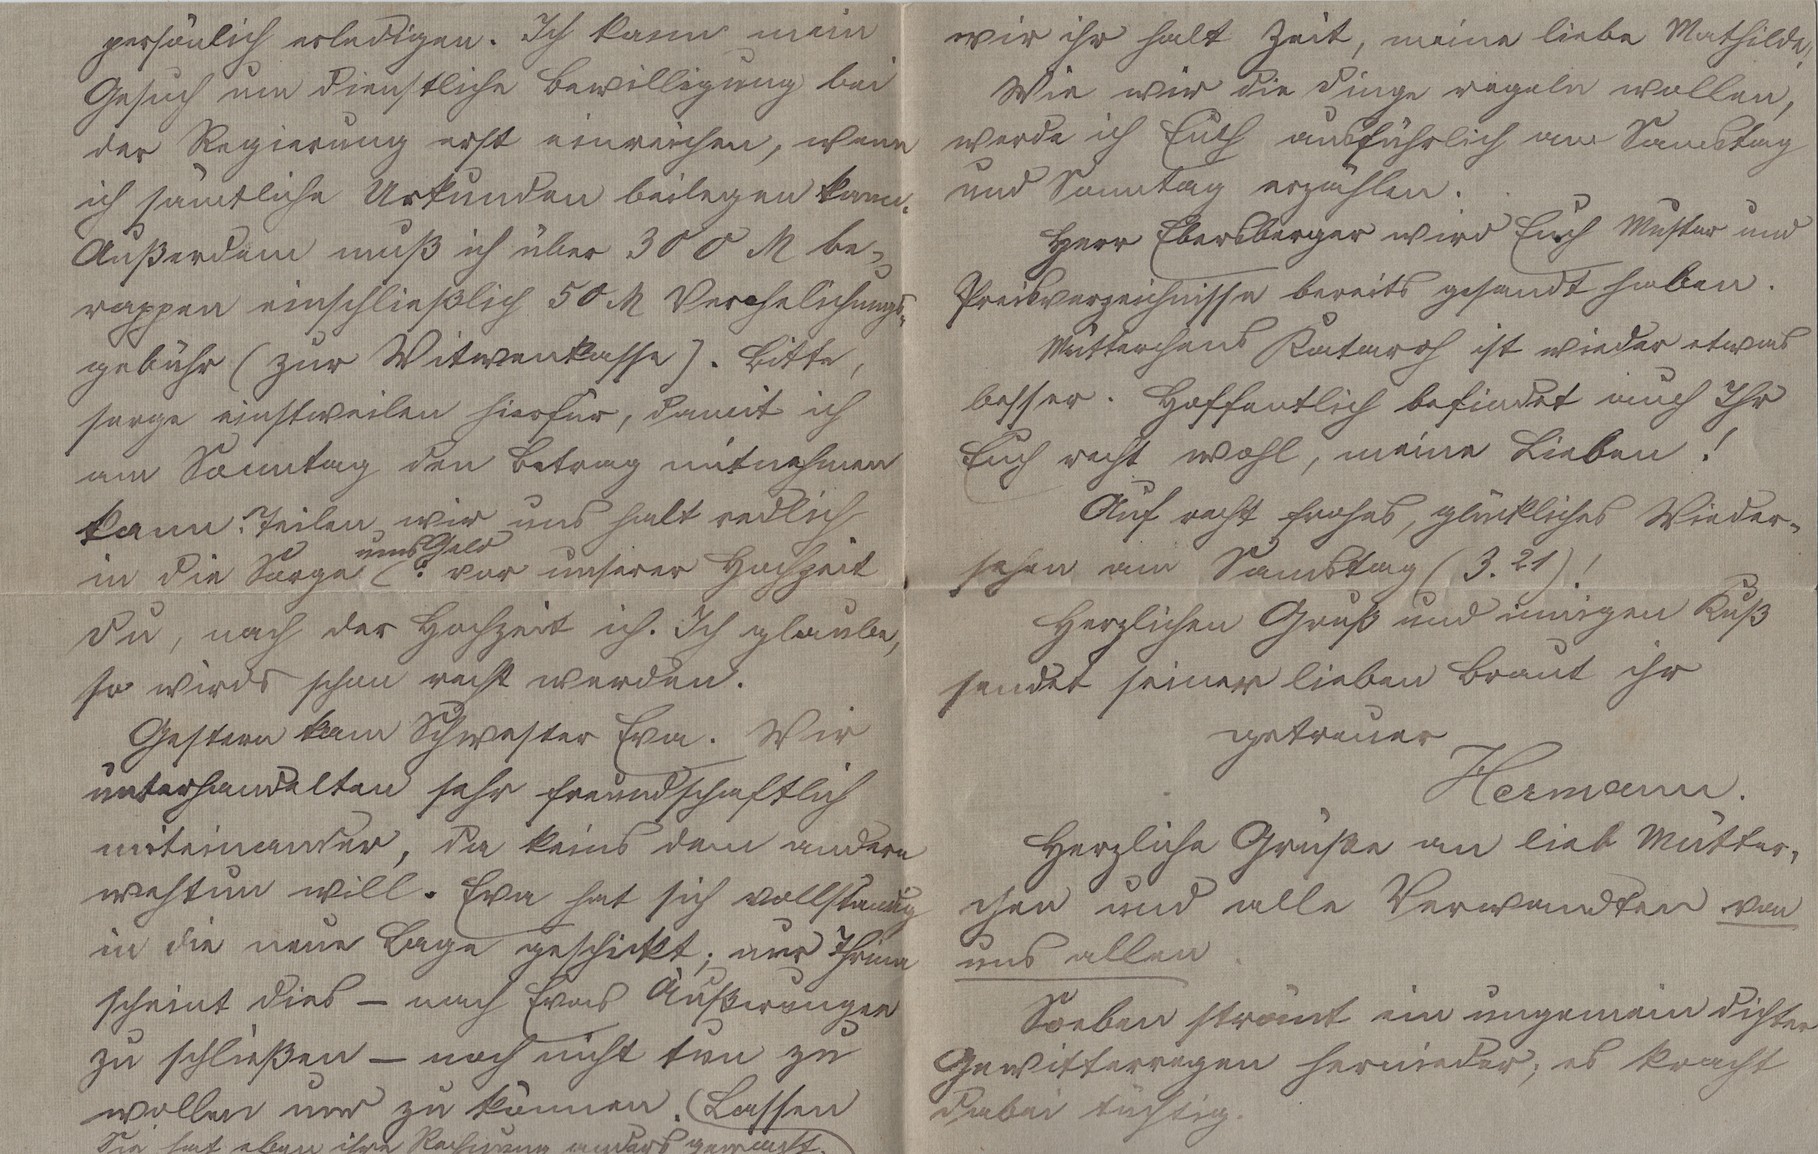 persönlich erledigen. Ich kann mein
Gesuch um dienstliche Bewilligung bei
der Regierung erst einreichen, wenn
ich sämtliche Urkunden beilegen kann.
Außerdem muß ich über 300 M be-
rappen einschließlich 50 M Verehelichungs-
gebühr (zur Witwenkasse). Bitte,
sorge einstweilen hierfür, damit ich
am Sonntag den Betrag mitnehmen
kann. Teilen wir uns halt redlich
ums Geld
in die Sorge vor unserer Hochzeit
Du, nach der Hochzeit ich. Ich glaube,
so wirds schon recht werden.
Gestern kam Schwester Eva. Wir
unterhandelten sehr freundschaftlich
miteinander, da keins dem andern
wehtun will. Eva hat sich vollständig
in die neue Lage geschickt; nur
scheint dies – nach Evas Äußerungen
zu schließen – noch nicht tun zu
wollen und zu können. Lassen
Sie hat eben ihre Rechnung anders gemacht.
wir ihr halt Zeit, meine liebe Mathilde.
Wie wir die Dinge regeln wollen,
werde ich Euch ausführlich am Samstag
und Sonntag erzählen.
Herr Ebersberger wird Euch Muster und
Preisverzeichnisse bereits gesandt haben.
Mütterchens Katarrh ist wieder etwas
besser. Hoffentlich befindet auch Ihr
Euch recht wohl, meine Lieben!
Auf recht frohes, glückliches Wieder-
sehen am Samstag (3.21)!
Herzlichen Gruß und innigen Kuß
sendet seiner lieben Braut ihr
getreuer
Hermann.
Herzliche Grüße an lieb Mütter-
chen und alle Verwandten von
uns allen.
Soeben strömt ein ungemein dichter
Gewitterregen hernieder; es kracht
dabei tüchtig.